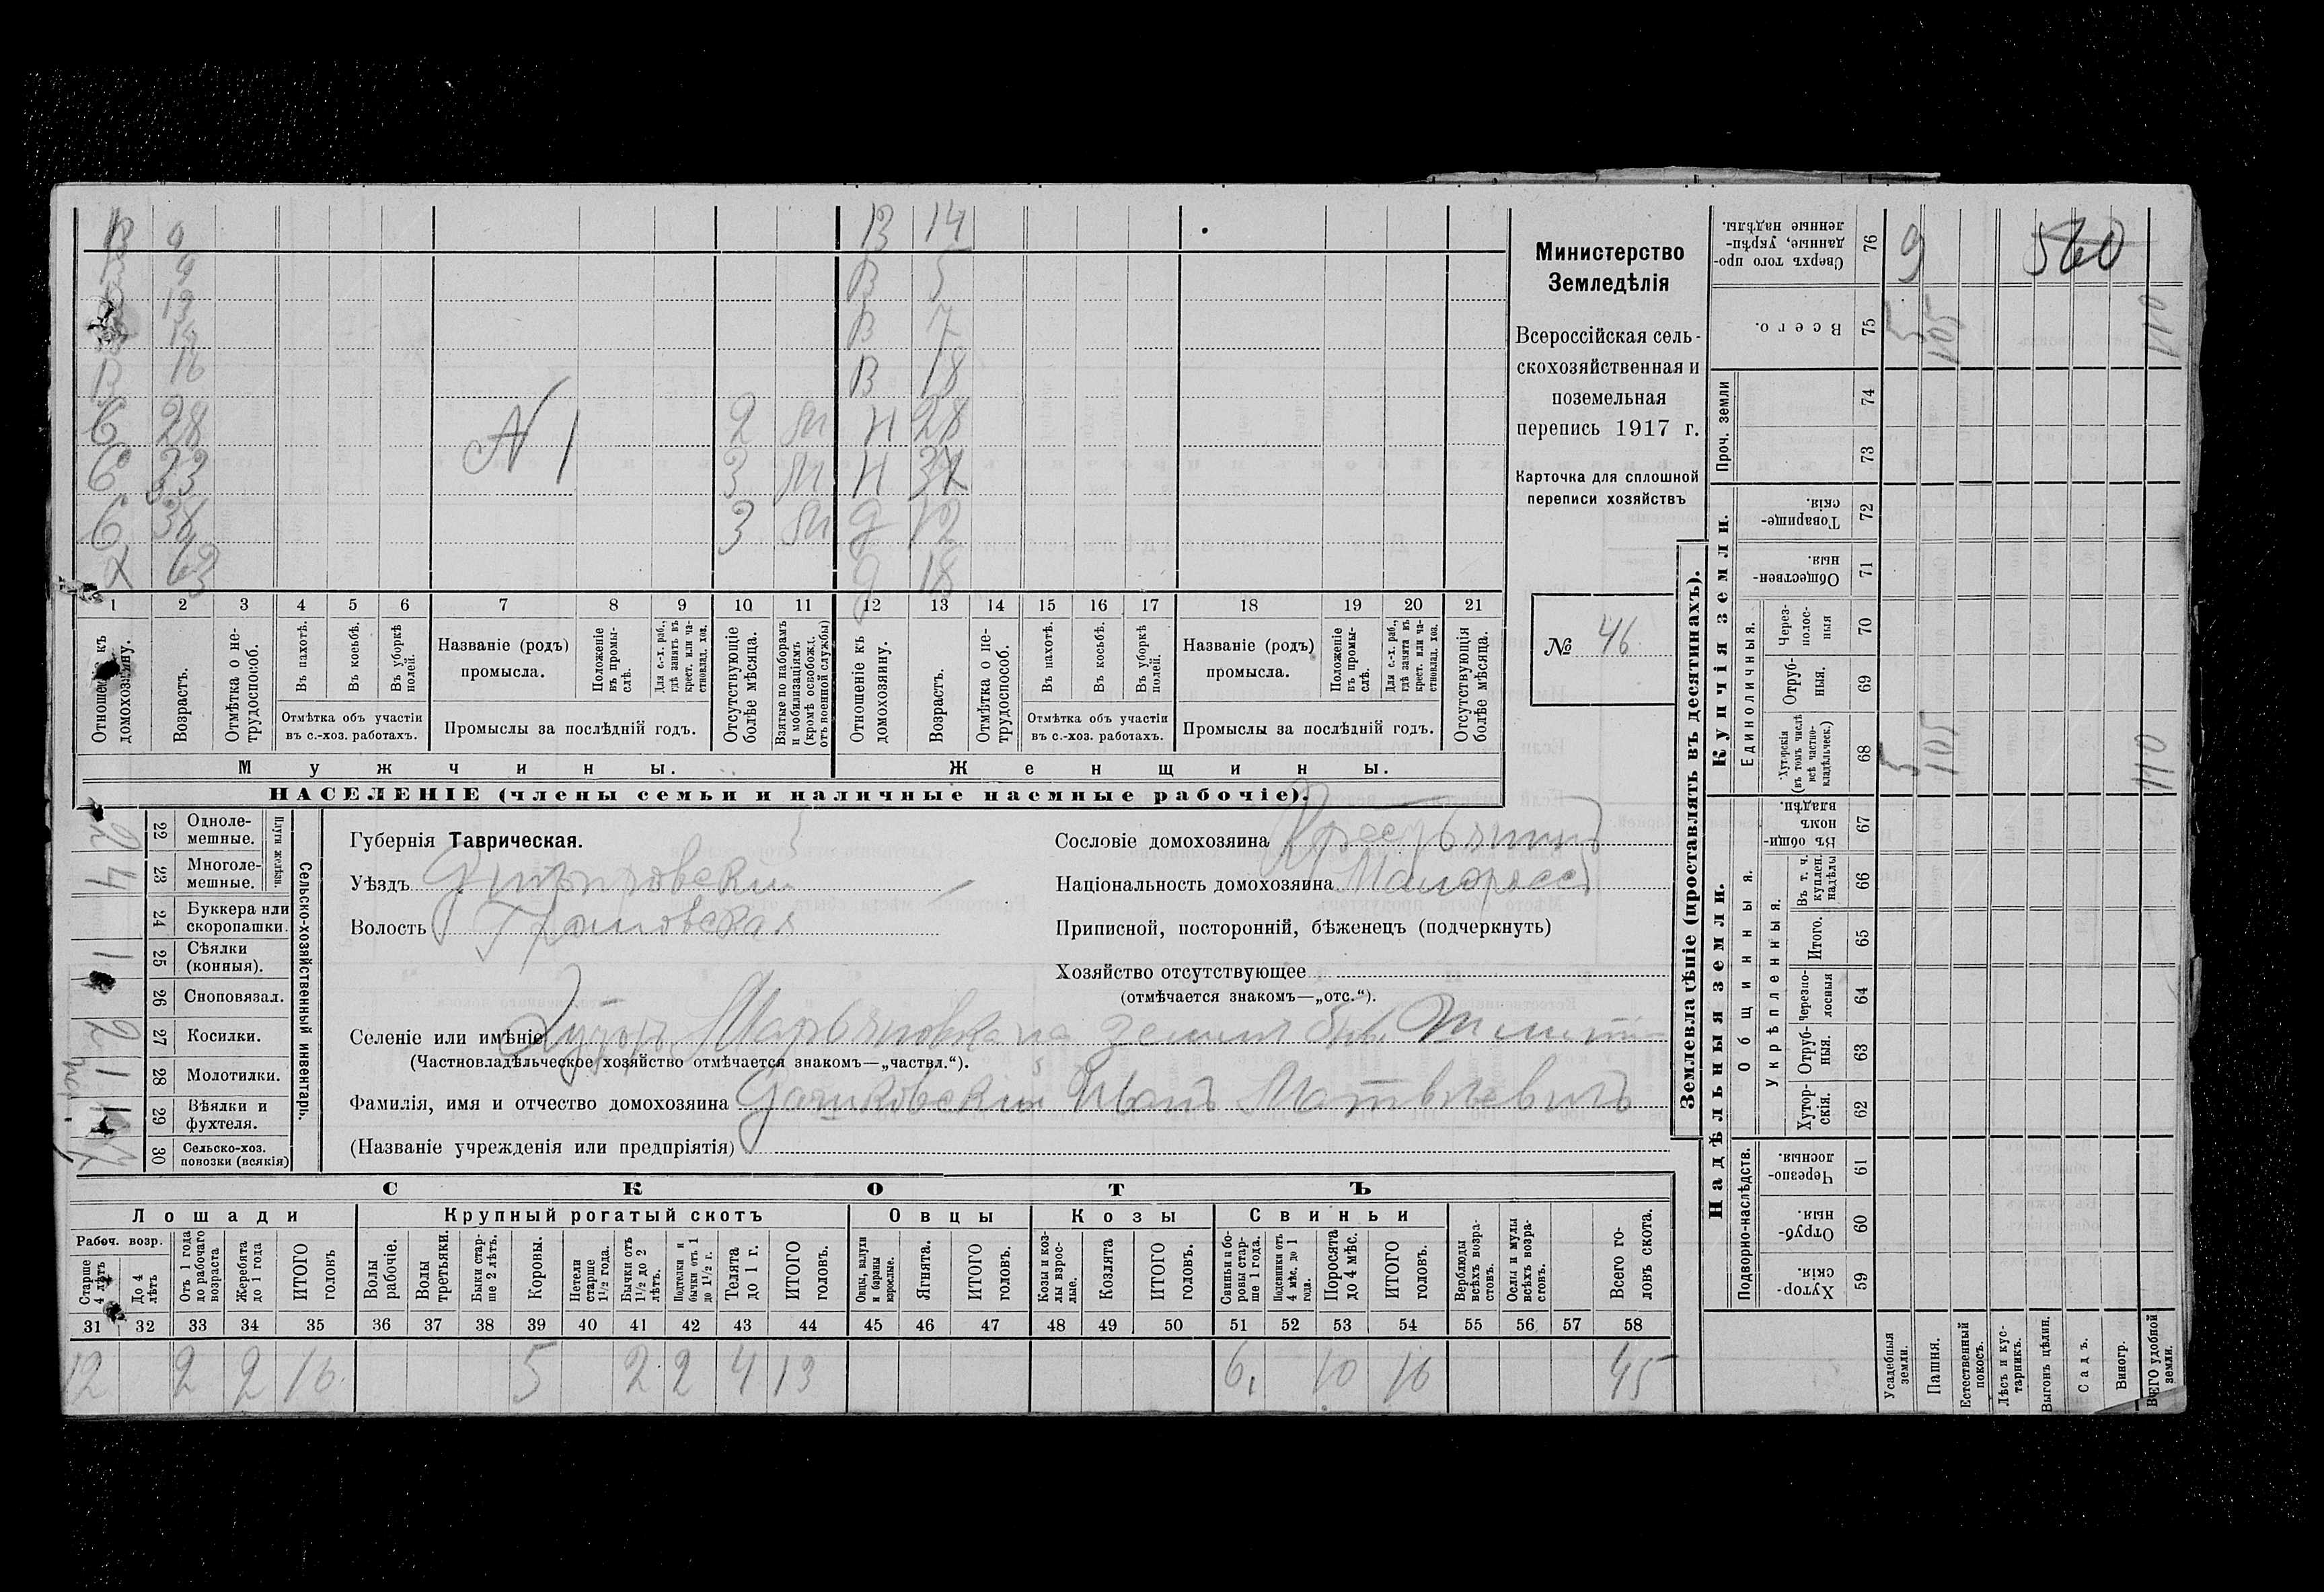 В 9 В 14
В 9 В 5
13 В 7
14
В 16 В 18
С 28 2 Н 28
С 33 N 1 3 Н
С 3 д 12
Х 63 д 18
1 2 3 4 5 6 7 8 9 10 11 12 13 14 15 16 17 18 19 20 21
Отношеніе къ домохозяину.
Возрастъ.
Отмѣтка о нетрудоспособ.
Въ пахотѣ.
Въ косьбѣ.
Въ уборкѣ полей.
Отмѣтка объ участіи
въ с.-хоз. работахъ.
Названіе (родъ)
промысла.
Положеніе въ промыслѣ.
Для с.-х. раб., гдѣ занятъ въ крест. или частновлад. хоз.
Промыслы за послѣдній годъ.
Отсутствующіе болѣе мѣсяца.
Взятые по наборамъ и мобилизаціямъ (кромѣ освобожд. отъ военной службы)
Отношеніе къ домохозяину.
Возрастъ.
Отмѣтка о нетрудоспособ.
Въ пахотѣ.
Въ косьбѣ.
Въ уборкѣ полей.
Отмѣтка объ участіи
въ с.-хоз. работахъ.
Названіе (родъ)
промысла.
Положеніе въ промыслѣ.
Для с.-х. раб., гдѣ занята въ крест. или частновлад. хоз.
Промыслы за послѣдній годъ.
Отсутствующія болѣе мѣсяца.
Мужчины. Женщины.
НАСЕЛЕНІЕ (члены семьи и наличные наемные рабочіе).
Министерство
Земледѣлія
Всероссійская сель-
скохозяйственная и
поземельная
перепись 1917 г.
Карточка для сплошной
переписи хозяйствъ
№ 46
Сельско-хозяйственный инвентарь.
Плуги желѣзн.
22 Одноле-
мешные. 2
23 Многоле-
мешные. 4
24 Буккера или
скоропашки.
25 Сѣялки
(конныя). 1
26 Сноповязал.
27 Косилки. 2
28 Молотилки. 1
29 Вѣялки и
фухтеля. 1
30 Сельско-хоз.
повозки (всякія)
Губернія Таврическая.
Уѣздъ Днѣпровскій
Волость
Сословіе домохозяина Крестьянинъ
Національность домохозяина Малороссъ
Приписной, посторонній, бѣженецъ (подчеркнуть)
Хозяйство отсутствующее
(отмѣчается знакомъ—„отс.“).
Селеніе или имѣніе Хуторъ Марьяновка на земли быв.
(Частновладѣльческое хозяйство отмѣчается знакомъ—„частвл.“).
Фамилія, имя и отчество домохозяина Дашковскій Иванъ Матвѣевичъ
(Названіе учрежденія или предпріятія)
СКОТЪ
Лошади Крупный рогатый скотъ Овцы Козы Свиньи
Рабоч. возр.
Старше 4 лѣтъ
До 4 лѣтъ
Отъ 1 года до рабочаго возраста
Жеребята до 1 года
ИТОГО головъ
Волы рабочіе.
Волы третьяки.
Быки старше 2 лѣтъ.
Коровы.
Нетели старше 1½ года.
Бычки отъ 1½ до 2 лѣтъ.
Подтелки и бычки отъ 1 до 1½ г.
Телята до 1 г.
ИТОГО головъ.
Овцы, валухи и бараны взрослые.
Ягнята.
ИТОГО головъ.
Козы и козлы взрослые.
Козлята
ИТОГО головъ.
Свиньи и боровы старше 1 года.
Подсвинки отъ 4 мѣс. до 1 года.
Поросята до 4 мѣс.
ИТОГО головъ.
Верблюды всѣхъ возрастовъ.
Ослы и мулы всѣхъ возрастовъ.
Всего головъ скота.
31 32 33 34 35 36 37 38 39 40 41 42 43 44 45 46 47 48 49 50 51 52 53 54 55 56 57 58
12 2 2 16 5 2 2 4 13 6 10 16 45
Землевладѣніе (проставлять въ десятинахъ).
Купчія земли.
Надѣльныя земли.
Сверхъ того проданные, укрѣпленные надѣлы. 76 9 560
Всего. 75 5 105 110
Проч. земли
74
73
Товарищескія. 72
Общественныя. 71
Единоличныя.
Черезполосныя 70
Отрубныя. 69
Хуторскія (въ томъ числѣ всѣ частновладѣльческ.) 68 5 105 110
Общинныя.
Въ общинномъ владѣн. 67
Укрѣпленныя.
Въ т. ч. куплен. надѣлы 66
Итого. 65
Черезполосныя 64
Отрубныя. 63
Хуторскія. 62
Подворно-наслѣдств.
Черезполосныя. 61
Отрубныя. 60
Хуторскія. 59
Усадебныя земли.
Пашня.
Естественный покосъ.
Лѣсъ и кустарникъ.
Выгонъ цѣлин.
Садъ.
Виногр.
ВСЕГО удобной земли.